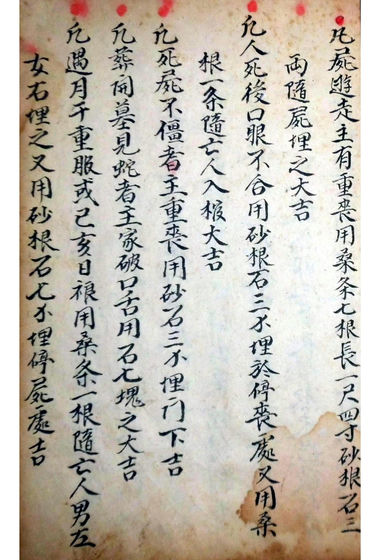 凡屍遊走主有重喪用桑条七根長一尺四寸砂根石三
両隨屍埋之大吉
凡人死後口眼不合用砂根石三个埋於停喪處又用桑
根一条隨亡人入棺大吉
凡死屍不僵者主重喪用砂石三个埋门下吉
凡葬開墓見蛇者主家破口舌用石七塊之大吉
凡遇月千重服或己亥日用桑条一根隨亡人男左
女右埋之又用砂根石七个埋停屍處吉